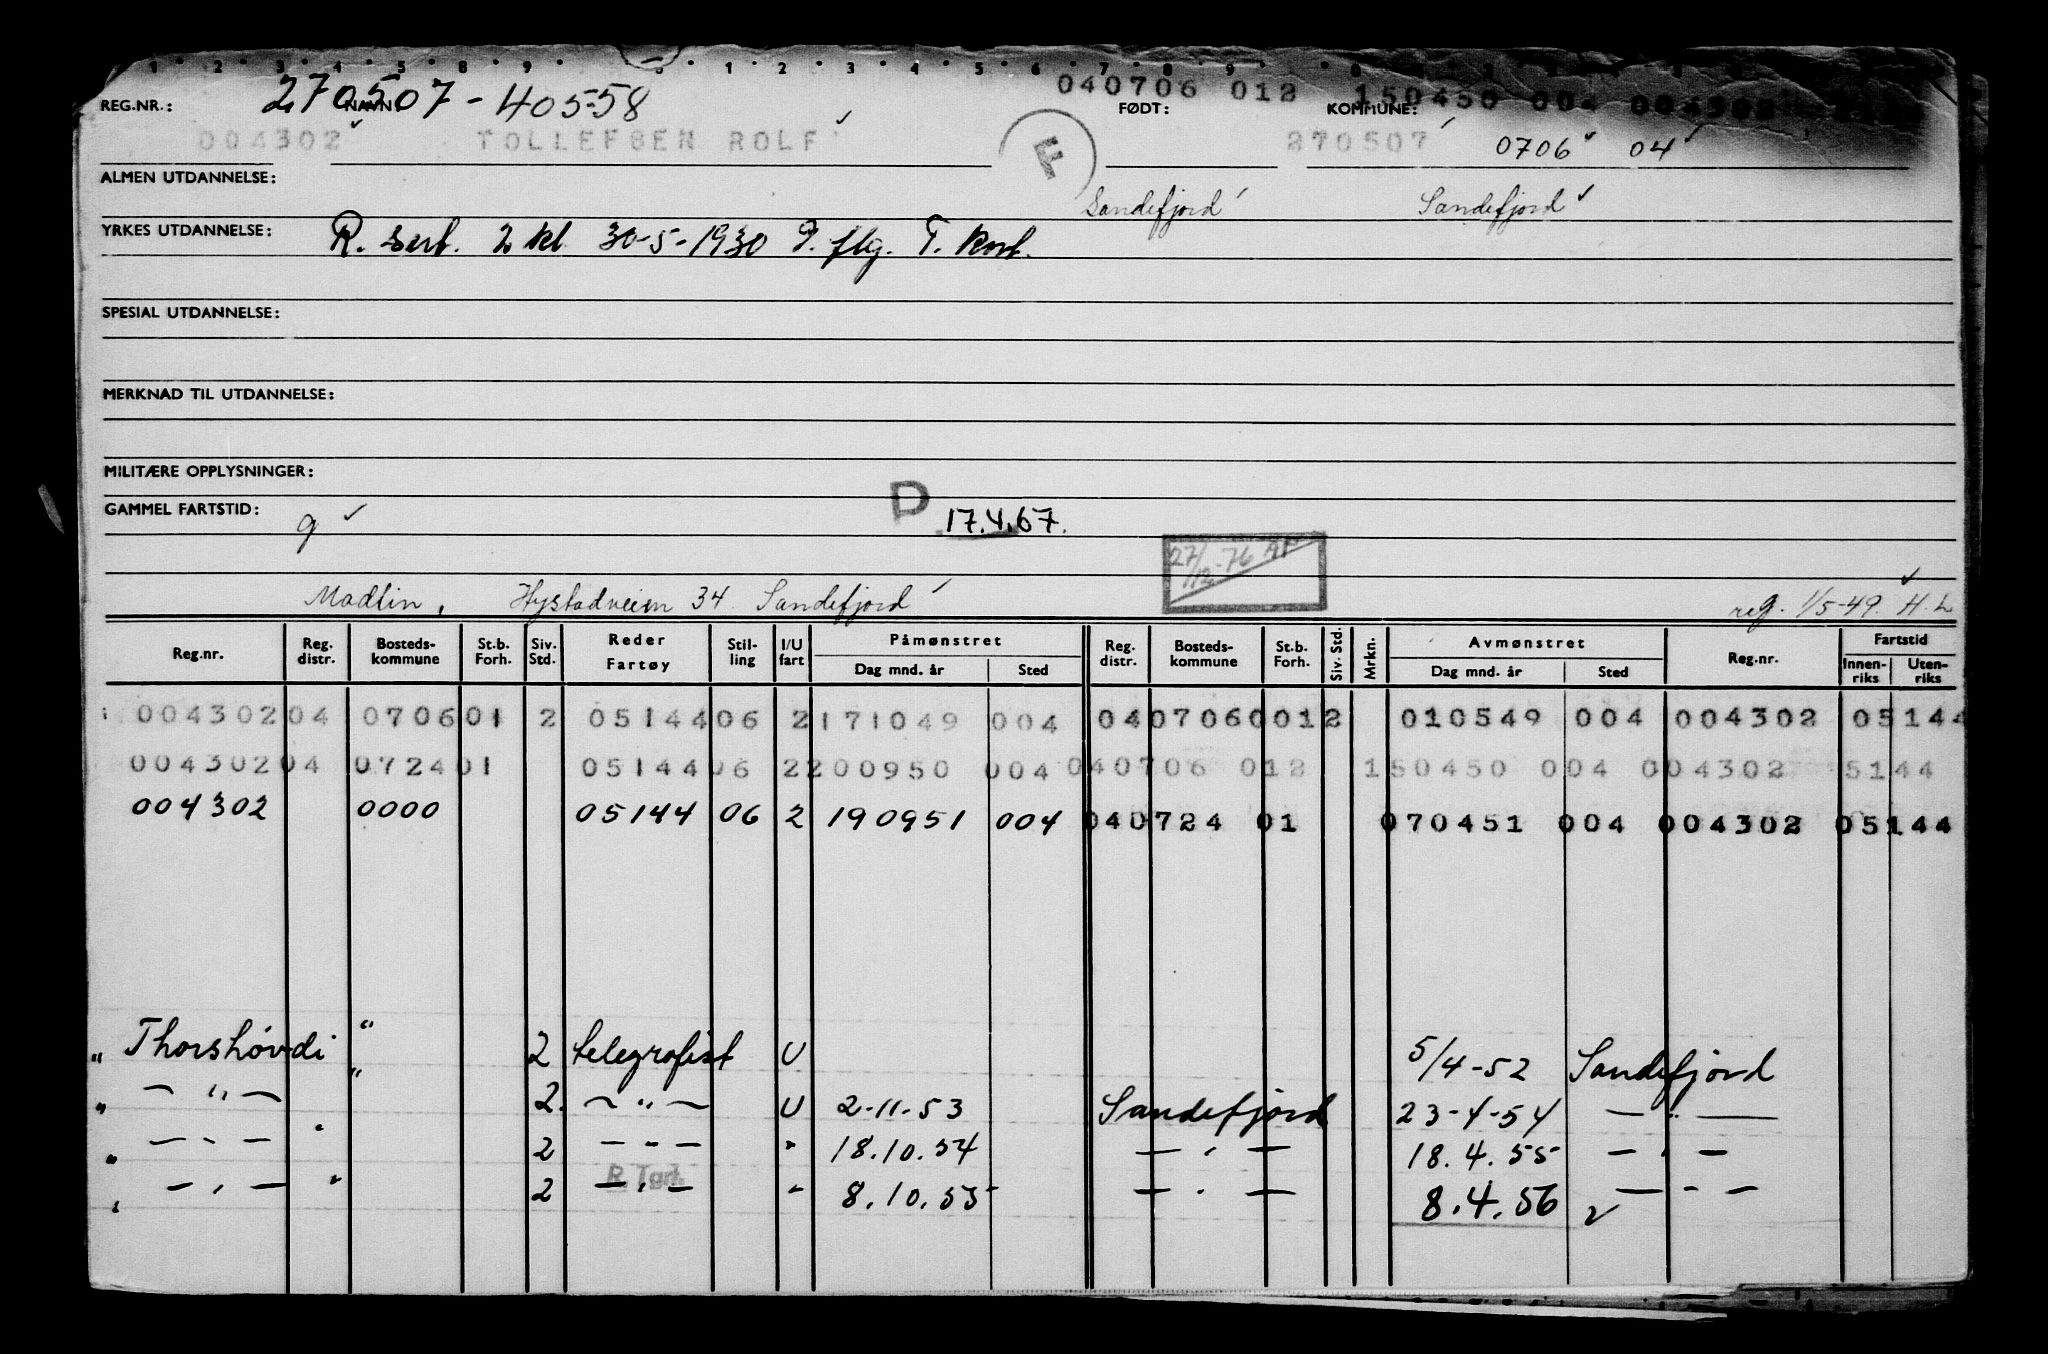 1 2 3 4 5 8 9 0 1 2 3 4 5 6 7 8 9
270507 - 40558 040706 012 150450 004 004302
REG.NR.: NAVN: FØDT: KOMMUNE:
004302 TOLLEFSEN ROLF F 270507 0706 04
ALMEN UTDANNELSE: Sandefjord Sandefjord
YRKES UTDANNELSE: R. sert. 2 kl 30-5-1930 T.
SPESIAL UTDANNELSE:
MERKNAD TIL UTDANNELSE:
MILITÆRE OPPLYSNINGER:
GAMMEL FARTSTID: g D 17.4.67.
27/12-76
Hystadveien 34 Sandefjord reg. 1/5-49. H.L
Reg.nr. Reg. distr. Bosteds-kommune St.b. Forh. Siv. Std. Reder Fartøy Stil-ling I/U fart Påmønstret Dag mnd. år Sted Reg. distr. Bosteds-kommune St.b. Forh. Siv. Std. Mrkn. Avmønstret Dag mnd. år Sted Reg.nr. Fartstid Innen-riks Uten-riks
004302 04 0706 01 2 05144 06 2 171049 004 04 0706 0012 010549 004 004302 05144
004302 04 0724 01 05144 06 2 200950 004 040706 012 150450 004 004302 5144
004302 0000 05144 06 2 190951 004 040724 01 070451 004 004302 05144
" Thorshövdi " 2 telegrafist U 5/4-52 Sandefjord
" — " — " 2. — " — U 2-11-53 Sandefjord 23-4-54 — " —
" — " — " 2 — " — " 18.10.54 — " — 18.4.55 — " —
R Tgrf.
" — " — " 2 — " — " 8.10.55 — " — 8.4.56 — " —